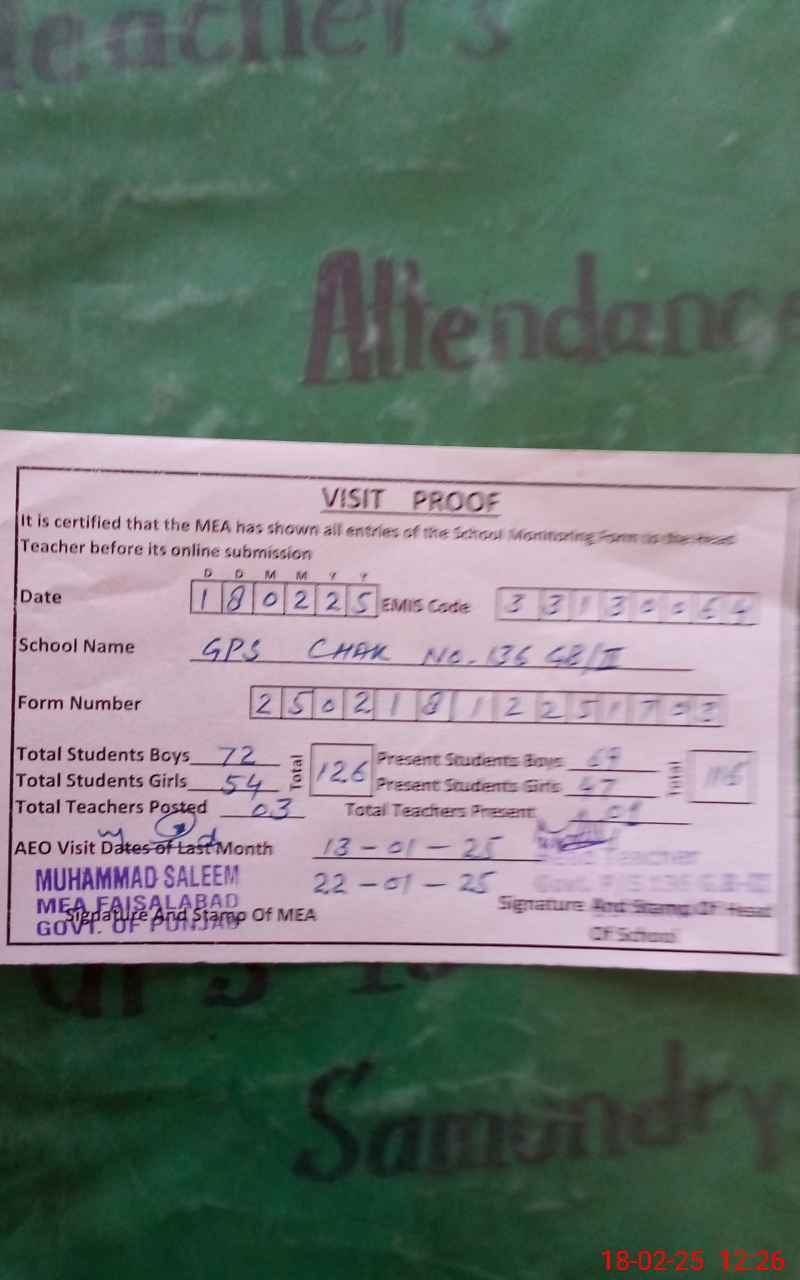 Teacher's
Attendance
VISIT PROOF
It is certified that the MEA has shown all entries of the School Monitoring Form to the Head
Teacher before its online submission
D D M M Y Y
Date 1 8 0 2 2 5 EMIS Code 3 3 1 3 0 0 6 4
School Name GPS CHAK NO. 136 GB/II
Form Number 2 5 0 2 1 8 1 2 2 5 1 7 0 3
Total Students Boys 72 Total 126 Present Students Boys 69 Total 116
Total Students Girls 54 Present Students Girls 47
Total Teachers Posted 03 Total Teachers Present
AEO Visit Dates of Last Month 13-01-25
22-01-25
Head Teacher
MUHAMMAD SALEEM
MEA FAISALABAD
GOVT. OF PUNJAB
Signature And Stamp Of MEA
Signature And Stamp Of Head
Of School
GPS
Samundry
18-02-25 12:26